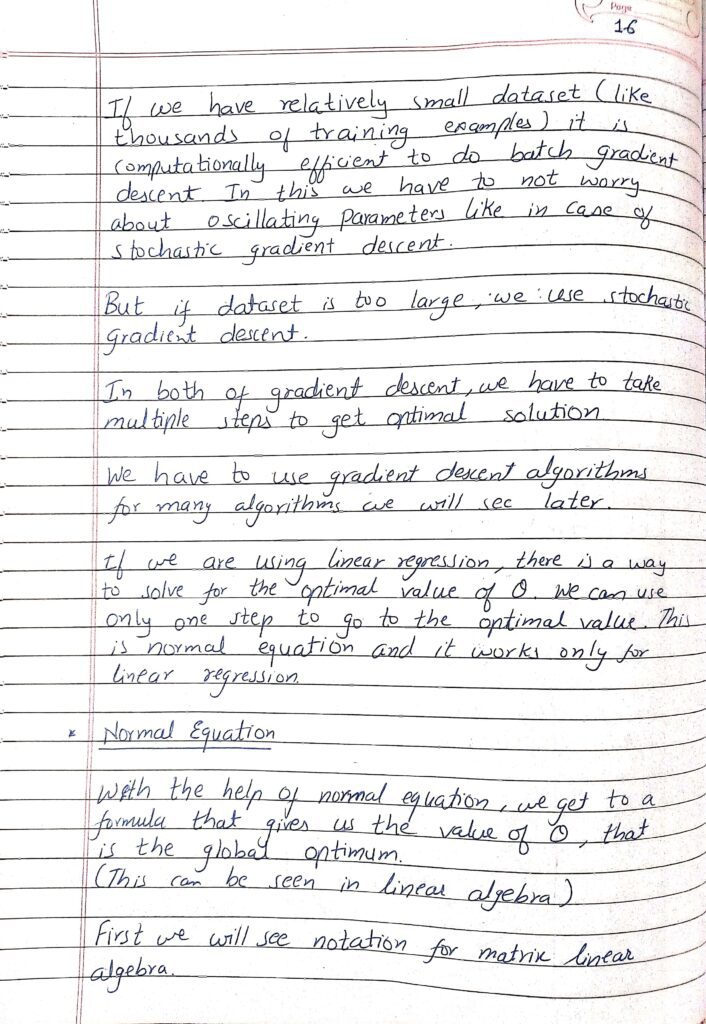 Page
16
If we have relatively small dataset (like
thousands of training examples) it is
computationally efficient to do batch gradient
descent. In this we have to not worry
about oscillating parameters like in case of
stochastic gradient descent.
But if dataset is too large, we use stochastic
gradient descent.
In both of gradient descent, we have to take
multiple steps to get optimal solution
We have to use gradient descent algorithms
for many algorithms we will see later.
If we are using linear regression, there is a way
to solve for the optimal value of θ. We can use
only one step to go to the optimal value. This
is normal equation and it works only for
linear regression.
* Normal Equation
With the help of normal equation, we get to a
formula that gives us the value of θ, that
is the global optimum.
(This can be seen in linear algebra)
First we will see notation for matrix linear
algebra.